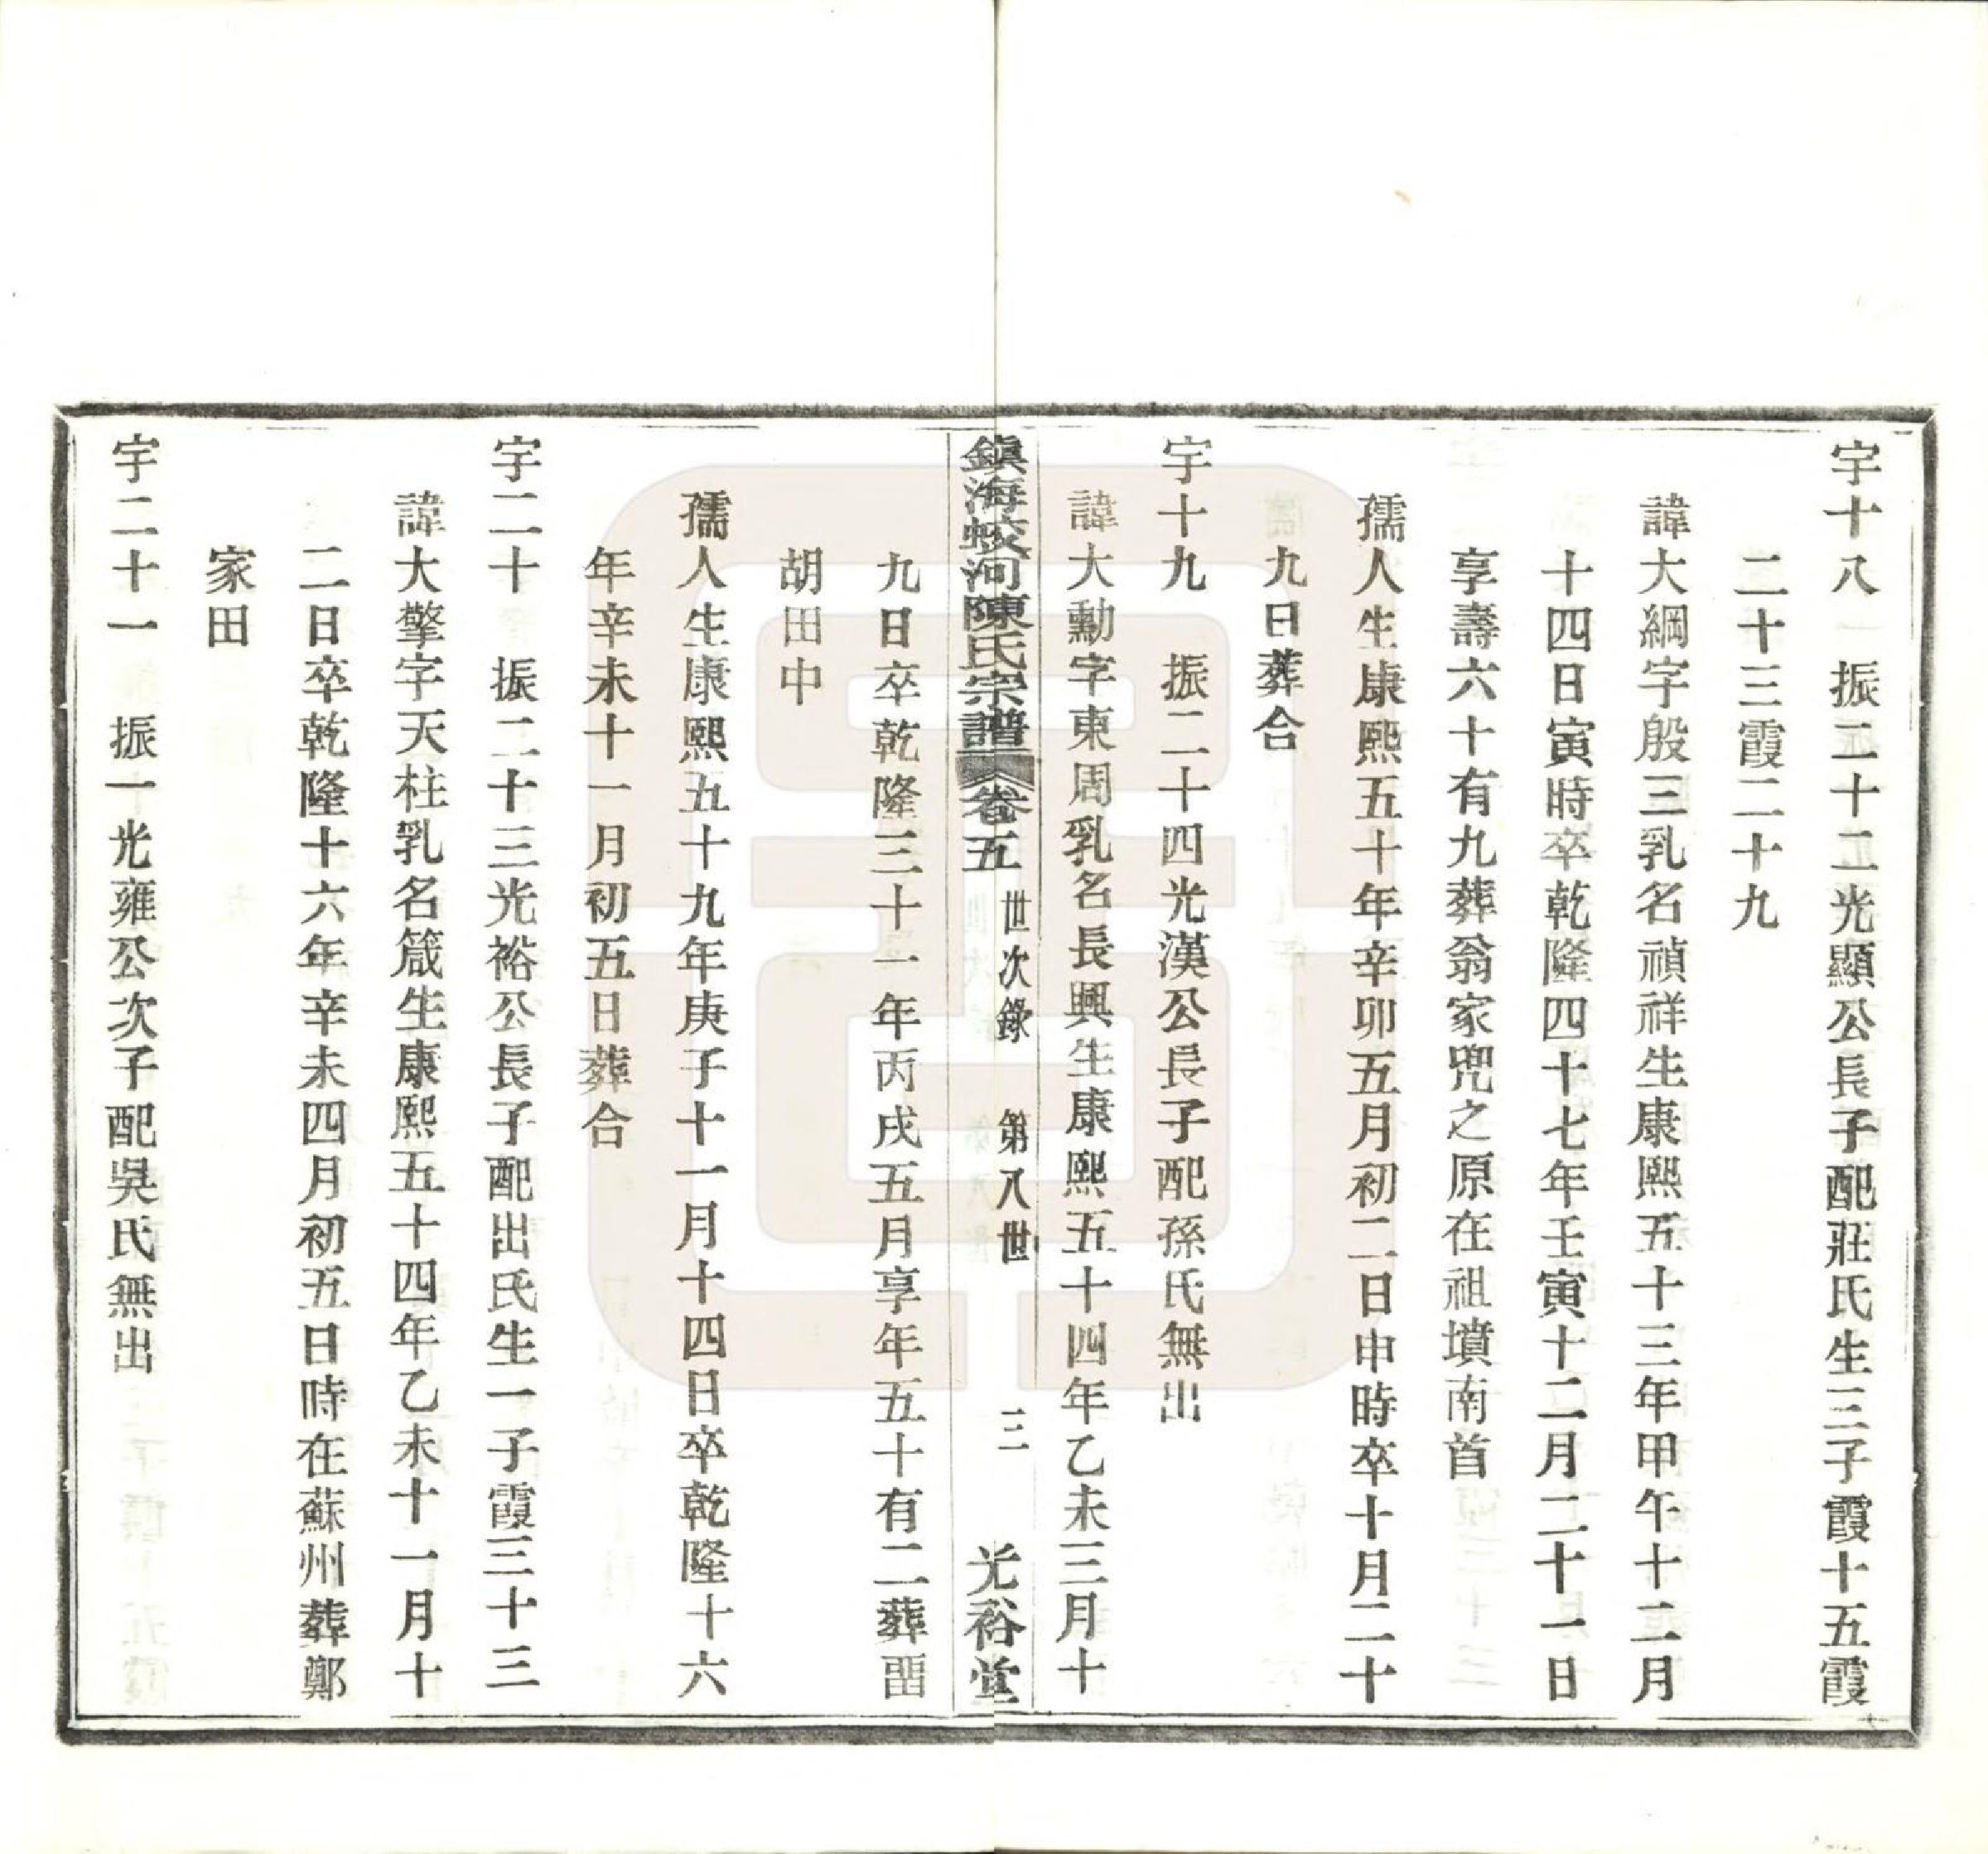 宇十八　振二十二光顯公長子配莊氏生三子霞十五霞
二十三霞二十九
諱大綱字殷三乳名禎祥生康熙五十三年甲午十二月
十四日寅時卒乾隆四十七年壬寅十二月二十一日
享壽六十有九葬翁家兜之原在祖墳南首
孺人生康熙五十年辛卯五月初二日申時卒十月二十
九日葬合
宇十九　振二十四光漢公長子配孫氏無出
諱大勳字東周乳名長興生康熙五十四年乙未三月十
鎮海蛟河陳氏宗譜　卷五　世次錄　第八世　三　光裕堂
九日卒乾隆三十一年丙戌五月享年五十有二葬畱
胡田中
孺人生康熙五十九年庚子十一月十四日卒乾隆十六
年辛未十一月初五日葬合
宇二十　振二十三光裕公長子配出氏生一子霞三十三
諱大擎字天柱乳名箴生康熙五十四年乙未十一月十
二日卒乾隆十六年辛未四月初五日時在蘇州葬鄭
家田
宇二十一　振一光雍公次子配吳氏無出